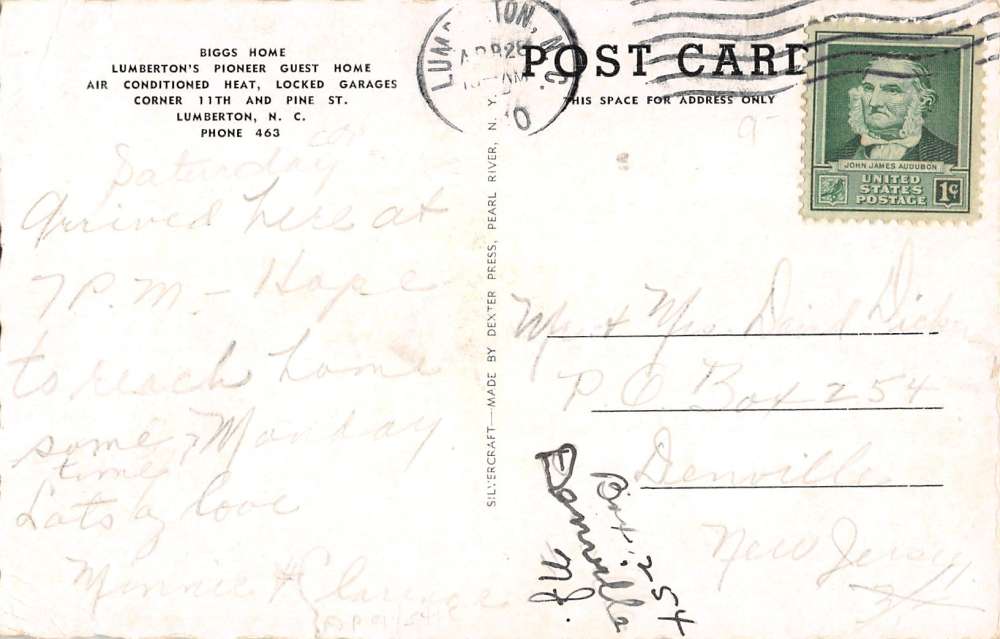 BIGGS HOME
LUMBERTON'S PIONEER GUEST HOME
AIR CONDITIONED HEAT, LOCKED GARAGES
CORNER 11TH AND PINE ST.
LUMBERTON, N. C.
PHONE 463
Saturday
Arrived here at
7 P.M — Hope
to reach home
some Monday
time
Lots of love
Minnie & Clarence
SILVERCRAFT—MADE BY DEXTER PRESS, PEARL RIVER, N. Y.
LUMBERTON, N.C.
APR 2
AM
POST CARD
THIS SPACE FOR ADDRESS ONLY
JOHN JAMES AUDUBON
UNITED
STATES
POSTAGE
1¢
Mr & Mrs David
P.O. Box 254
Denville
New Jersey
Box 254
Denville
N.J.